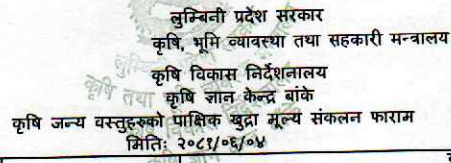 लुम्बिनी प्रदेश सरकार
कृषि, भूमि व्यावस्था तथा सहकारी मन्त्रालय
कृषि विकास निर्देशनालय
कृषि ज्ञान केन्द्र बांके
कृषि जन्य वस्तुहरुको पाक्षिक खुद्रा मूल्य संकलन फाराम
मितिः २०८१/०६/०४